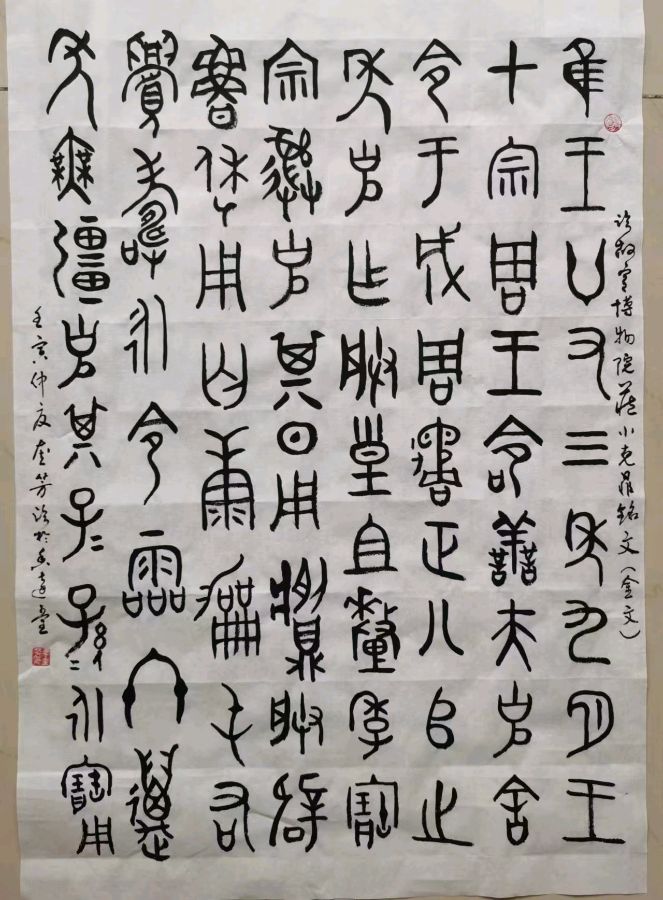 临故宫博物院藏小克鼎铭文（金文）
隹王廿又三年九月王
十宗周王命善夫克舍
令于成周遹正八𠂤之
年克乍朕皇且釐季寶
宗彝克其日用䵼朕辟
魯休用匄康勵屯右
眉壽永令霝冬邁
年無疆克其子〻孫〻永寶用
壬寅仲夏奎芳临於